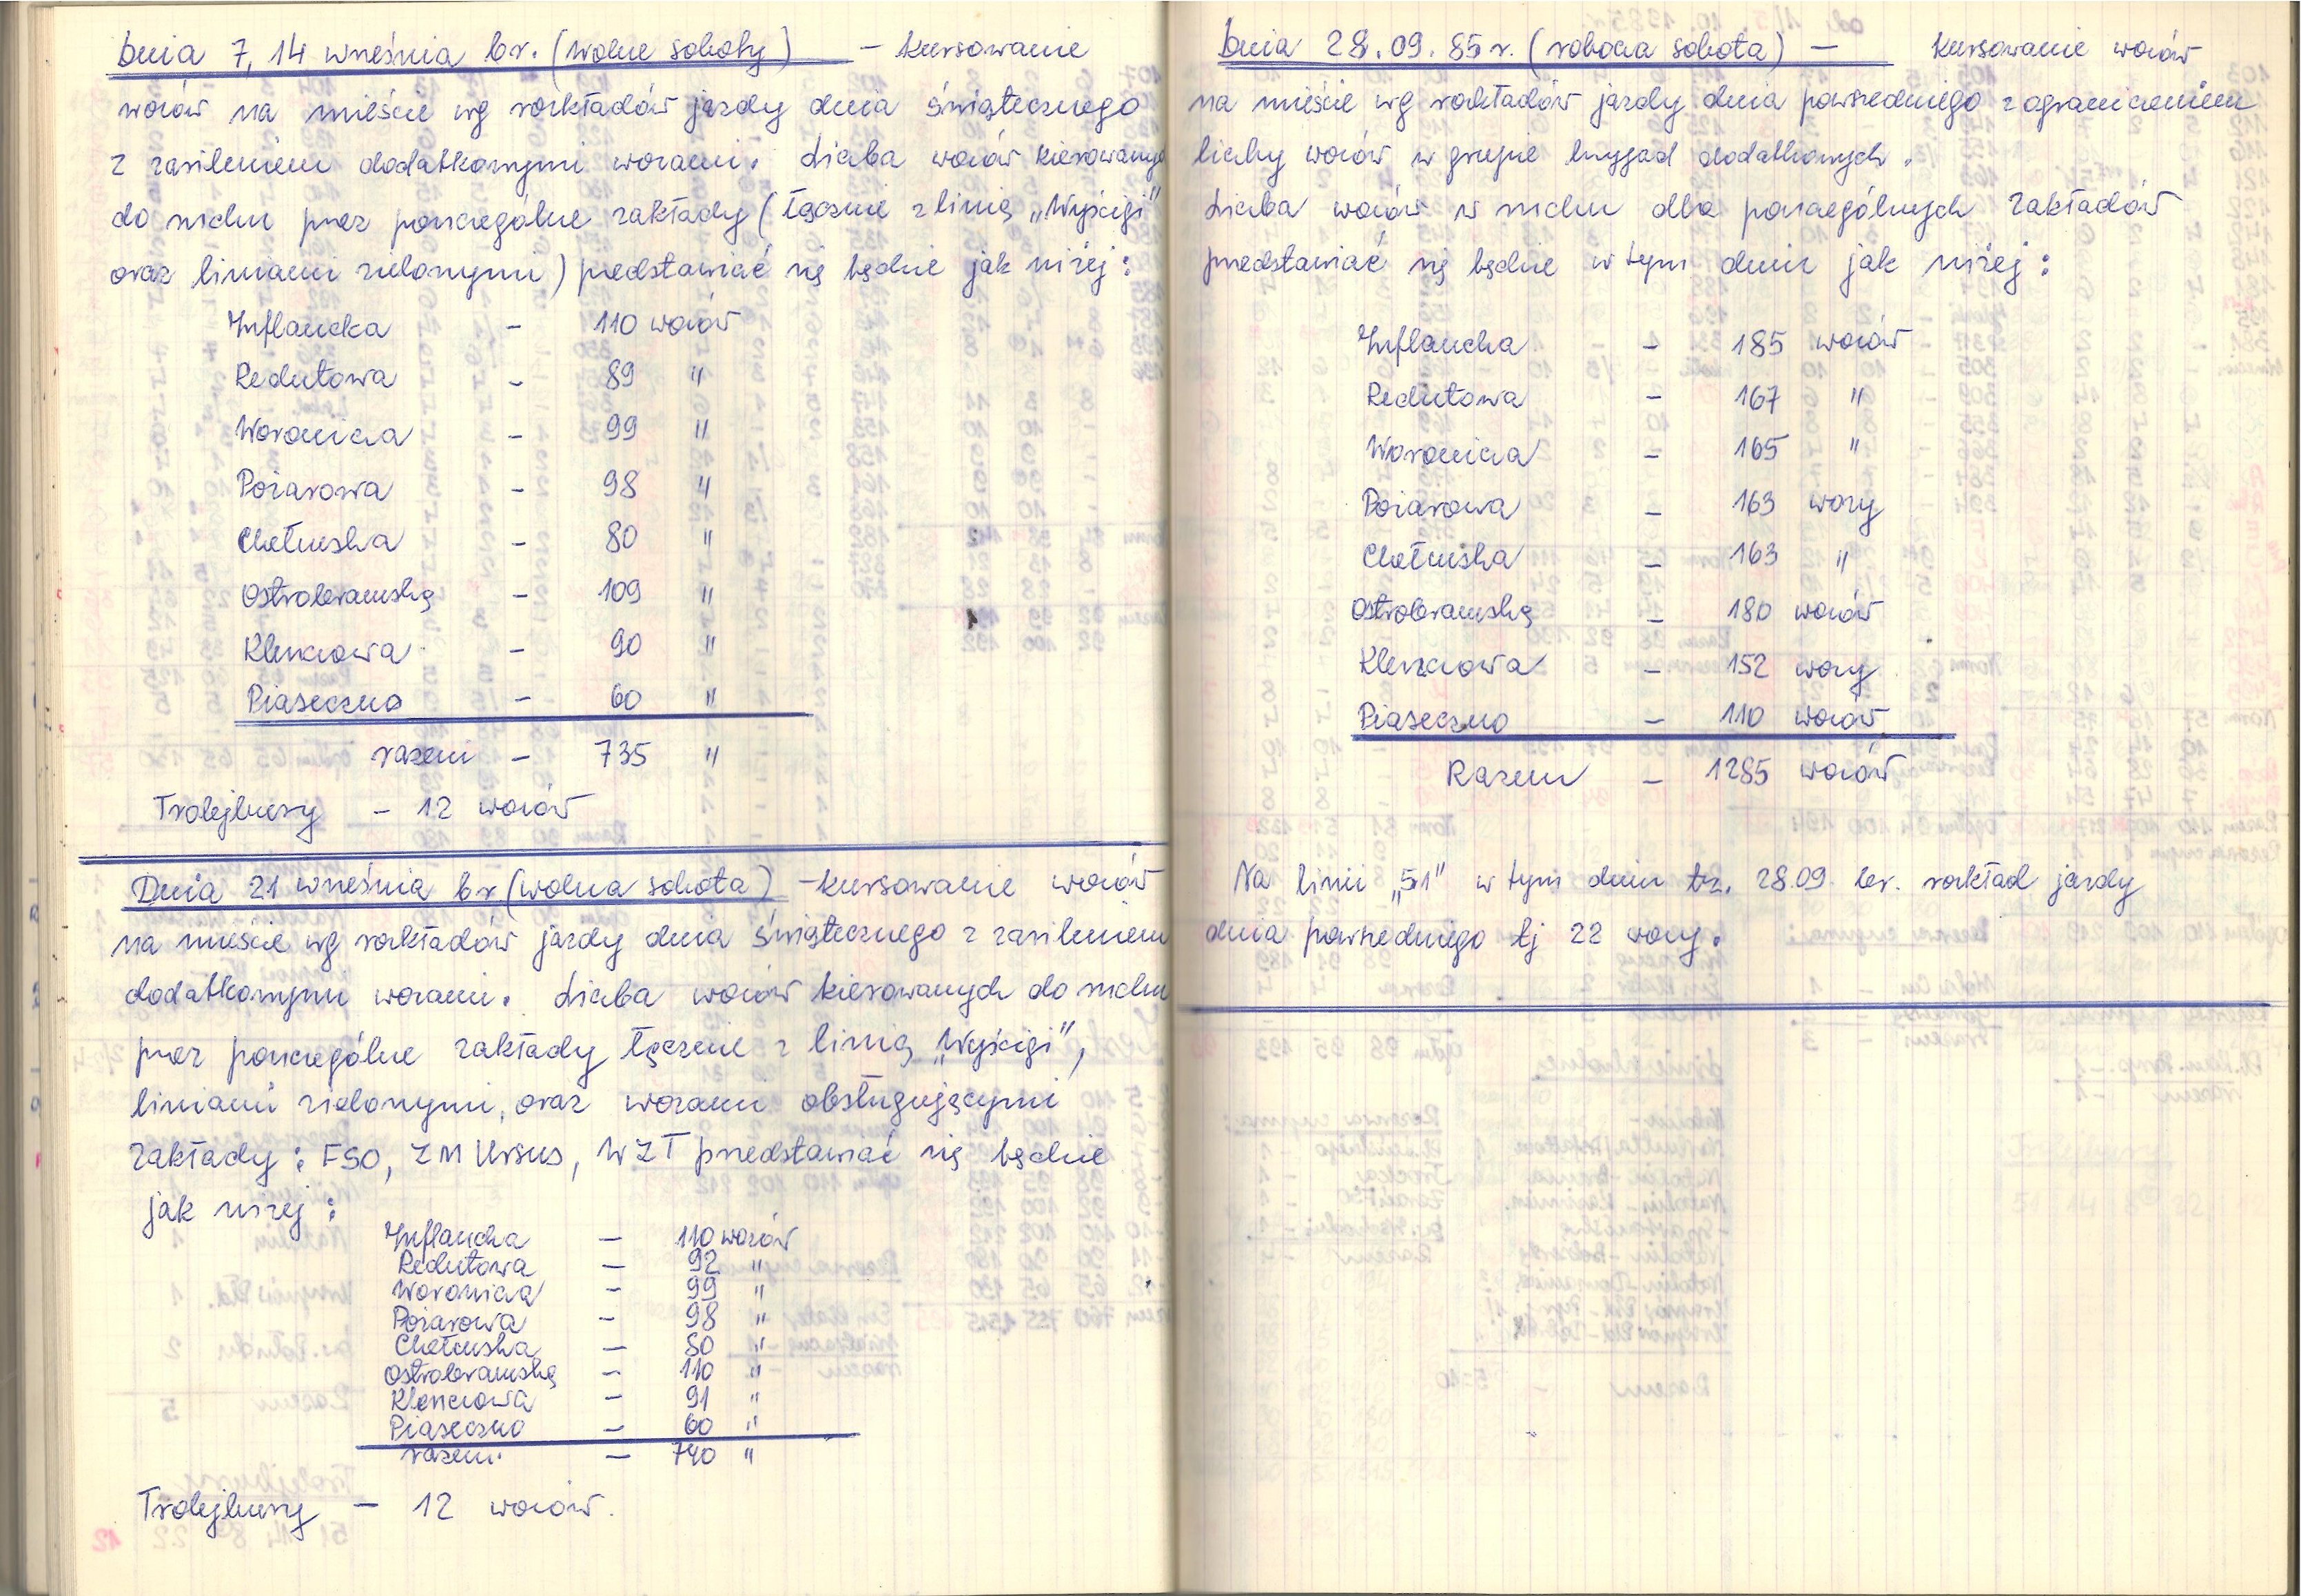 Dnia 7, 14 września br. (wolne soboty) – kursowanie
wozów na mieście wg rozkładów jazdy dnia świątecznego
z zasileniem dodatkowymi wozami. Liczba wozów kierowanych
do ruchu przez poszczególne zakłady (łącznie z linią „Wyścigi"
oraz liniami zielonymi) przedstawiać się będzie jak niżej:
Inflancka – 110 wozów
Redutowa – 89 "
Woronicza – 99 "
Pożarowa – 98 "
Chełmska – 80 "
Ostrobramska – 109 "
Kleszczowa – 90 "
Piaseczno – 60 "
razem – 735 "
Trolejbusy – 12 wozów
Dnia 21 września br (wolna sobota) – kursowanie wozów
na mieście wg rozkładów jazdy dnia świątecznego z zasileniem
dodatkowymi wozami. Liczba wozów kierowanych do ruchu
przez poszczególne zakłady łącznie z linią „Wyścigi",
liniami zielonymi, oraz wozami obsługującymi
zakłady: FSO, ZM Ursus, WZT przedstawiać się będzie
jak niżej:
Inflancka – 110 wozów
Redutowa – 92 "
Woronicza – 99 "
Pożarowa – 98 "
Chełmska – 80 "
Ostrobramska – 110 "
Kleszczowa – 91 "
Piaseczno – 60 "
razem. – 740 "
Trolejbusy – 12 wozów.
Dnia 28.09.85 r. (robocza sobota) – kursowanie wozów
na mieście wg rozkładów jazdy dnia powszedniego z ograniczeniem
liczby wozów w grupie brygad dodatkowych.
Liczba wozów w ruchu dla poszczególnych zakładów
przedstawiać się będzie w tym dniu jak niżej:
Inflancka – 185 wozów
Redutowa – 167 "
Woronicza – 165 "
Pożarowa – 163 wozy
Chełmska – 163 "
Ostrobramska – 180 wozów
Kleszczowa – 152 wozy
Piaseczno – 110 wozów
Razem – 1285 wozów
Na linii „51" w tym dniu tz. 28.09. br. rozkład jazdy
dnia powszedniego tj 22 wozy.